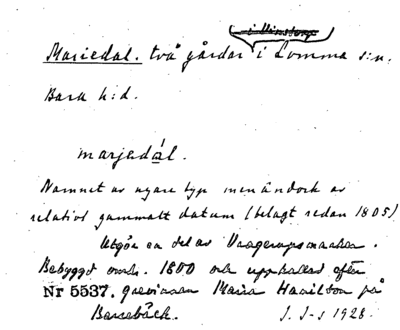 i Vinstorp
Mariedal. två gårdar i Lomma s:n.
Bara h:d.
marjedál.
Namnet av nyare typ men ändock av
relativt gammalt datum (belagt redan 1805)
Utgör en del av Vragerupsmarken.
Bebyggd omkr. 1800 och uppkallad efter
Nr 5537. grevinnan Maria Hamilton på
Barsebäck. J. J-s 1928.